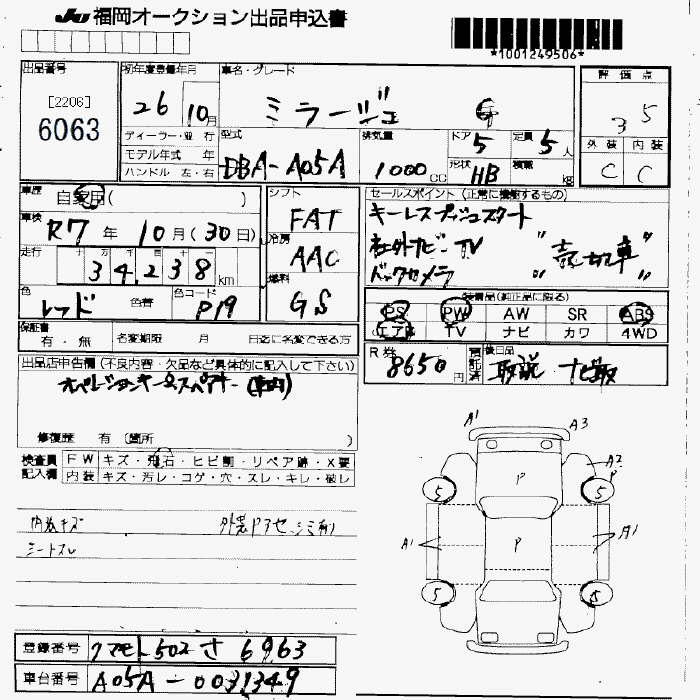 JU 福岡オークション出品申込書
*1001249506*
出品番号 [2206] 6063
初年度登録年月 26 10月
車名・グレード ミラージュ G
評価点 3 5
ディーラー・並行
モデル年式 年
ハンドル 左・右
型式 DBA-A05A
排気量 1000 CC
ドア 5
形状 HB
定員 5人
積載 kg
外装 C 内装 C
車歴 自家用( )
車検 R7 年 10月(30日)
走行 十 万 千 百 十 34,238 km
色 レッド 色替 色コード P19
シフト FAT
冷房 AAC
燃料 GS
セールスポイント(正常に機能するもの)
キーレスプッシュスタート
社外ナビ・TV "売切車"
バックカメラ
装備品(純正品に限る)
PS PW AW SR ABS
エアB TV ナビ カワ 4WD
保証書 有・無 名変期限 月 日迄に名変できる方
R券 8650円 預託済
後日品 取説 ナビ取
出品店申告欄(不良内容・欠品など具体的に記入して下さい)
オペレーションキー&スペアキー(車内)
修復歴 有 (箇所 )
検査員記入欄
FW キズ・飛石・ヒビ割・リペア跡・X要
内装 キズ・汚レ・コゲ・穴・スレ・キレ・破レ
内装キズ 外装ドアセ、シミ有り
シートスレ
A1 A3
A2
P P
5 5
A1 P A1
5 5
登録番号 クマモト502 さ 6963
車台番号 A05A-0031349